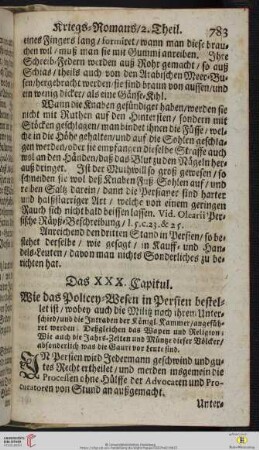 Kriegs-Romans/2. Theil. 783
eines Fingers lang/ formiret/ wann man diese brau-
chen wil/ muß man sie mit Gummi anreiben. Ihre
Schreib-Federn werden auß Rohr gemacht/ so auß
Schias/ theils auch von den Arabischen Meer-Bu-
sen/ hergebracht werden/ sie sind braun von aussen/ und
ein wenig dicker/ als eine Gänse-Kihl.
Wann die Knaben gesündiget haben/ werden sie
nicht mit Ruthen auf den Hintersten/ sondern mit
Stöcken geschlagen/ man bindet ihnen die Füsse/ wel-
che in die Höhe gehalten/ und auf die Sohlen geschla-
gen werden/ oder sie empfangen dieselbe Straffe auch
wol an den Händen/ daß das Blut zu den Nägeln her-
auß dringet. Ist der Muthwill so groß gewesen/ so
schneiden sie wol deß Knaben Fuß-Sohlen auf/ und
reiben Saltz darein/ dann die Persianer sind harter
und halßstarriger Art/ welche von einem geringen
Rauch sich nicht bald beissen lassen. Vid. Olearii Per-
sische Räyß-Beschreibung/ l. 5. c. 23. & 25.
Anreichend den dritten Stand in Persien/ so be-
stehet derselbe/ wie gesagt/ in Kauff- und Han-
dels-Leuten/ davon man nichts Sonderliches zu be-
richten hat.
Das XXX. Capitul.
Wie das Policey-Wesen in Persien bestel-
let ist/ wobey auch die Militz noch ihrem Unter-
schied/ und die Intraden der Königl. Kammer/ angefüh-
ret werden. Deßgleichen das Wapen und Religion.
Wie auch die Jahrs-Zeiten und Müntze dieser Völcker/
absonderlich was die Gauri vor Leute sind.
IN Persien wird Jedermann geschwind und gu-
tes Recht ertheilet/ und werden insgemein die
Processen ohne Hülffe der Advocaten und Pro-
curatoren von Stund an außgemacht.
Unter-